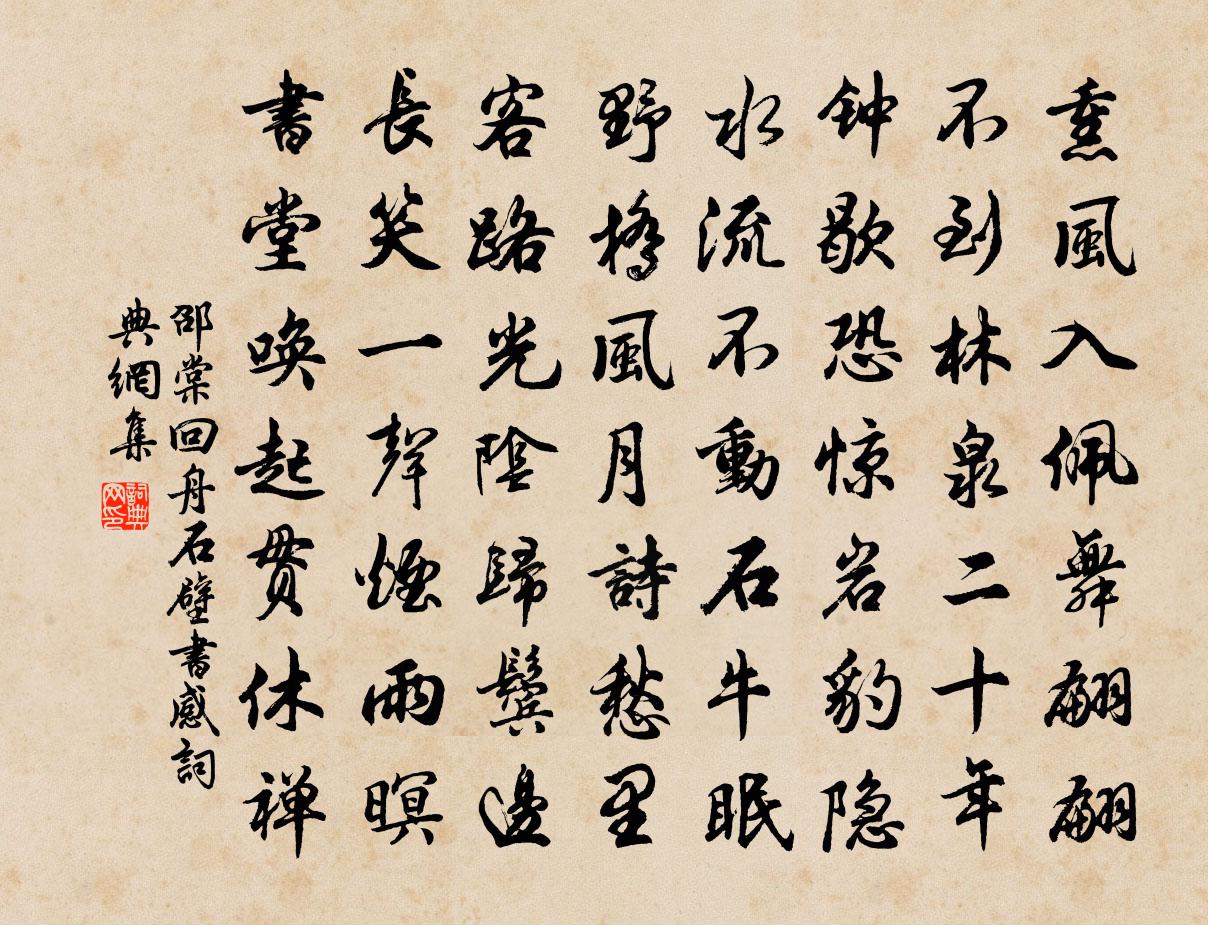 熏風入佩舞翩翩
不到林泉二十年
钟歇恐惊岩豹隐
水流不動石牛眠
野橋風月詩愁里
客路光陰歸鬢邊
長笑一聲煙雨暝
書堂喚起貫休禅
邵棠回舟石壁書感詞
典網集
詞典
网印